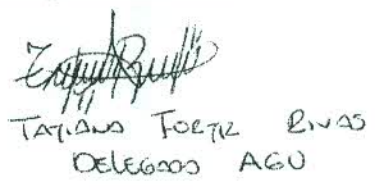 TATIANA FORTIZ RIVAS
DELEGADO AGU